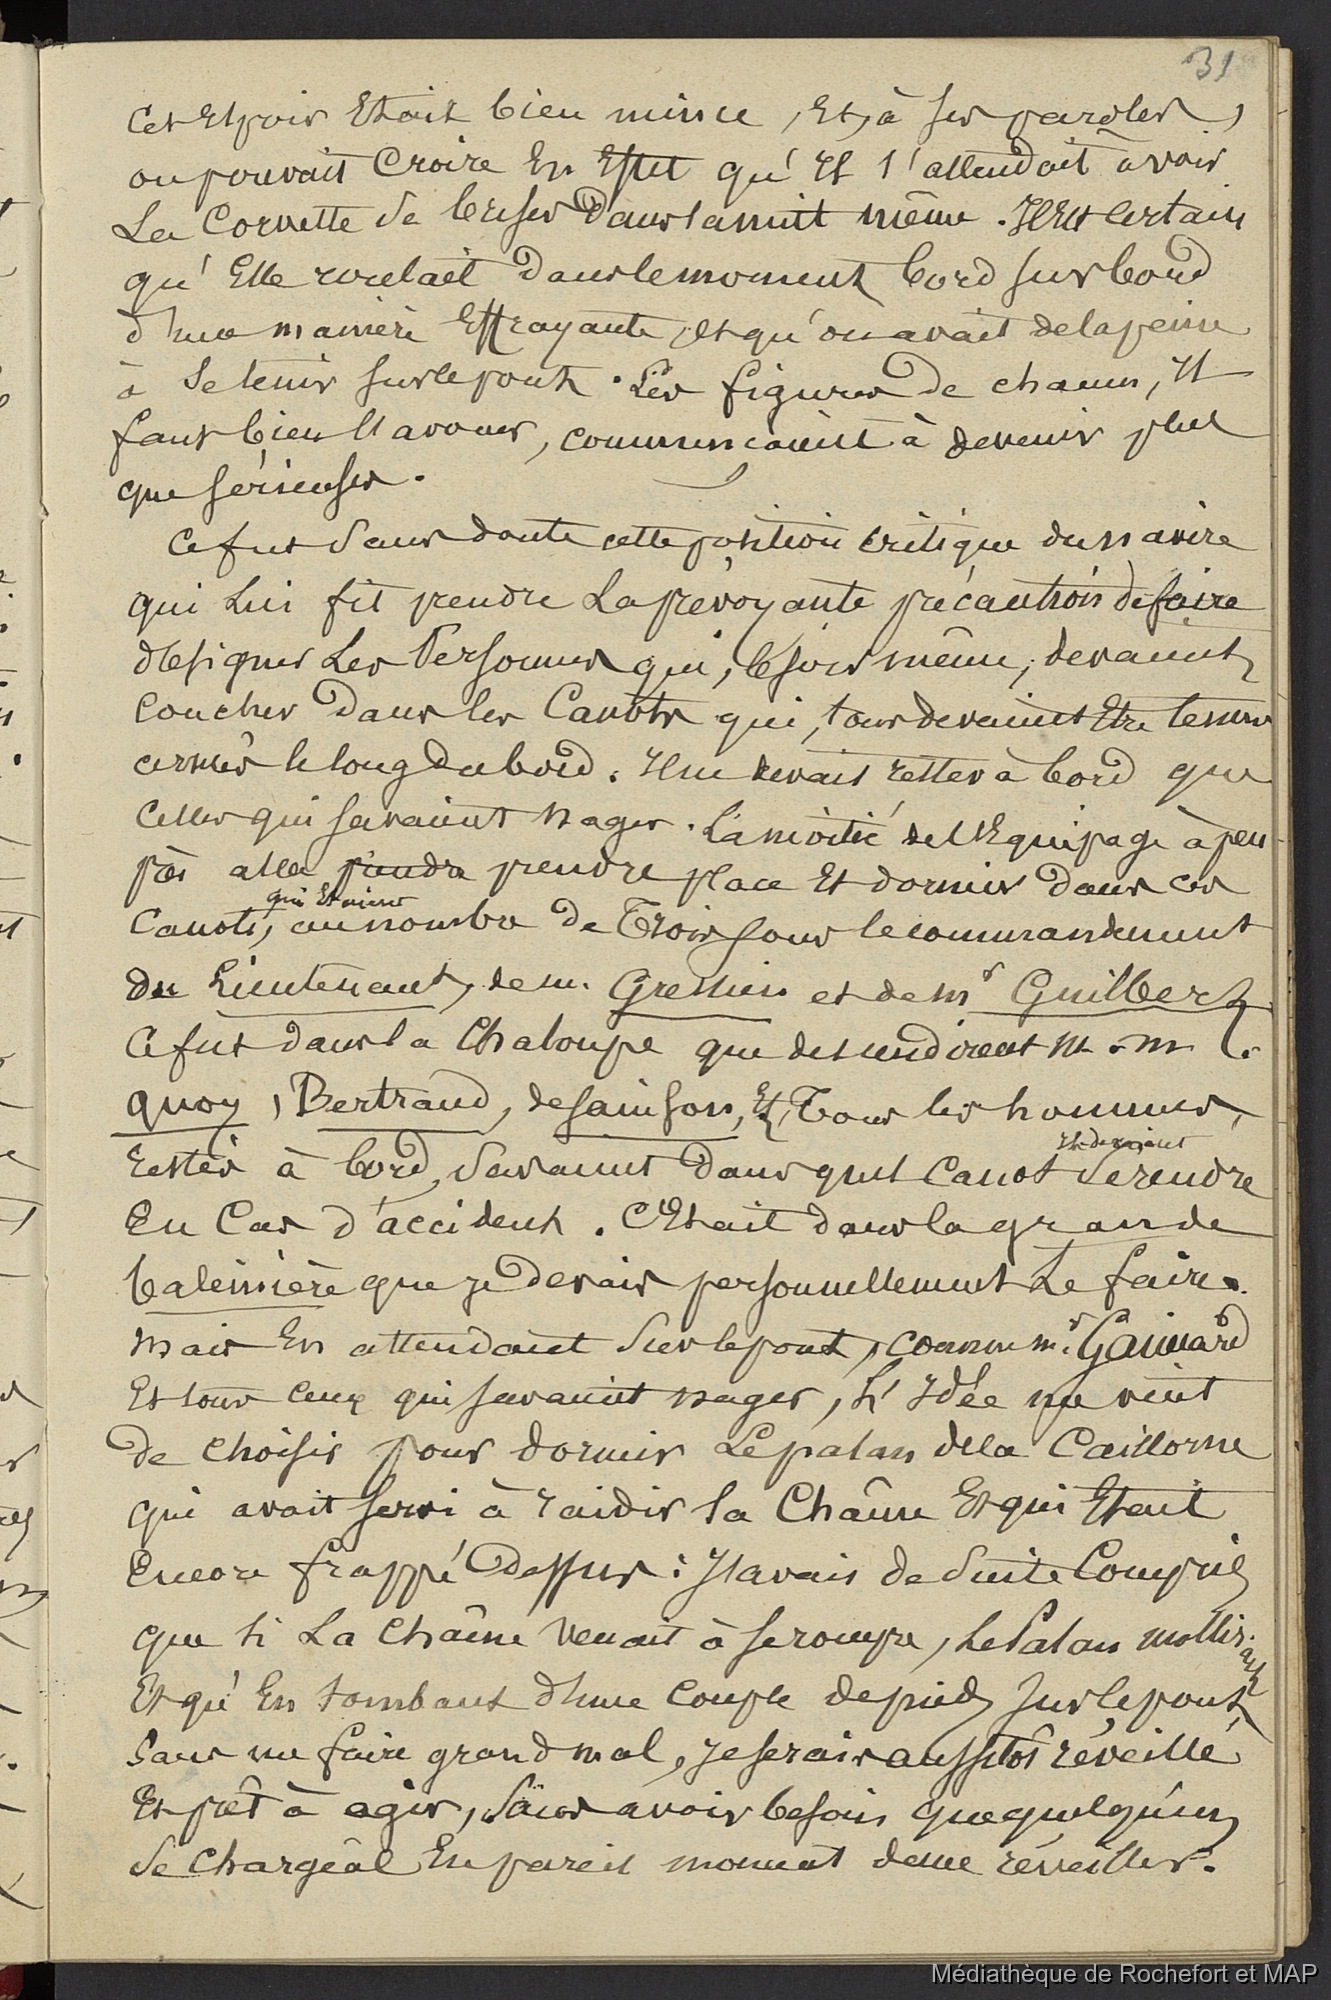 31
Cet Espoir Etait bien mince, Et, à ses paroles,
on pouvait Croire En Effet qu'Il s'attendait à voir
La Corvette se briser Dans la nuit même. Il Est Certain
qu'Elle roulait Dans le moment bord sur bord
d'une manière Effrayante, et qu'on avait de la peine
à se tenir sur le pont. Les figures De chacun, Il
faut bien l'avouer, commencaient à devenir plus
que sérieuses.
Ce fut sans doute cette position critique du navire
qui Lui fit prendre La prévoyante précaution de faire
désigner Les Personnes qui, le soir même, devaient
Coucher Dans les Canots qui, tous devaient Etre tenus
armés le long du bord. Il ne devait rester à bord que
Celles qui savaient nager. La moitié de l'Equipage à peu
près alla prendre prendre place Et dormir Dans ces
qui Etaient
Canots, au nombre De Trois sous le commandement
du Lieutenant, de m. Gressien et de mr Guilbert.
Ce fut dans la Chaloupe que descendirent M. M.
quoy, Bertrand, de Sainson, Et Tous les hommes,
Ils devaient
restés à bord, savaient Dans quel Canot se rendre
En Cas d'accident. C'Etait dans la grande
baleinière que je Devais personnellement Le faire.
Mais En attendant sur le pont, comme mr. Gaimard
Et tous ceux qui savaient nager, L'Idée me vint
De Choisir pour dormir Le palan de la Caillorne
qui avait servi à raidir la Chaîne Et qui Etait
Encore frappé Dessus: J'avais de suite Compris
que si La Chaîne Venait à se rompre, Le Palan mollirait
Et qu'En tombant d'une couple de pieds sur le pont,
Sans me faire grand mal, je serais aussitôt réveillé
Et prêt à agir, Sans avoir besoin que quelqu'un
se Chargeât En pareil moment de me réveiller.
Médiathèque de Rochefort et MAP